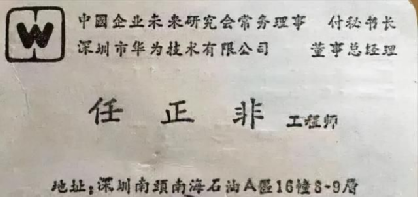 中國企业未来研究会常务理事 付秘书长
深圳市华为技术有限公司 董事总经理
任正非 工程师
地址:深圳南頭南海石油A區16幢8-9層